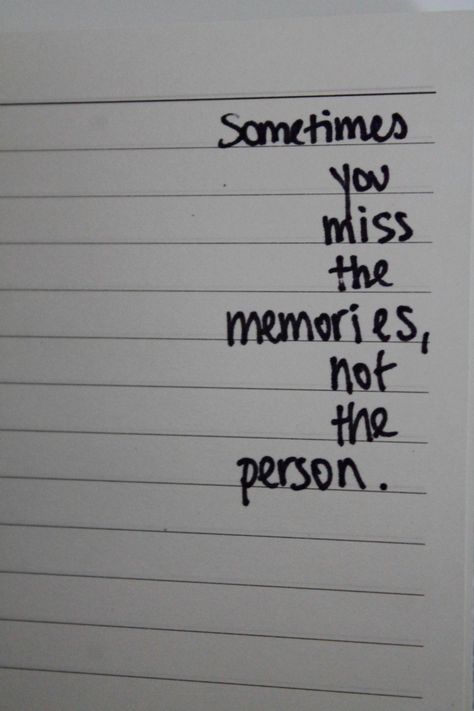 Sometimes
you
miss
the
memories,
not
the
person.